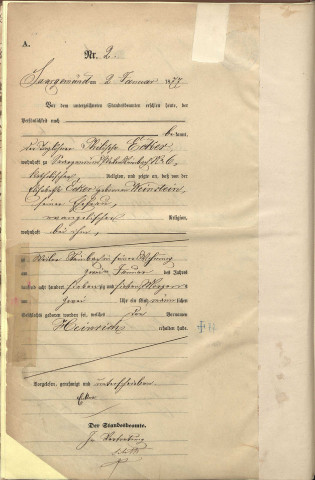 A.
Nr. 2
Saargemünd am 2 Januar 1877
Vor dem unterzeichneten Standesbeamten erschien heute, der
Persönlichkeit nach
be kannt,
der Tagelöhner Philipp Ecker
wohnhaft zu Saargemünd
katholischer Religion, und zeigte an, daß von der
Elisabetha Ecker geborenen Weinstein,
seiner Ehefrau,
evangelischer Religion,
wohnhaft bei ihm,
zu in seiner Wohnung
am zweiten Januar des Jahres
tausend acht hundert siebenzig und sieben Morgens
um zwei Uhr ein Kind männlichen
Geschlechts geboren worden sei, welches den Vornamen
Heinrich
erhalten habe.
Vorgelesen, genehmigt und unterschrieben
Ecker
Der Standesbeamte.
In Vertretung